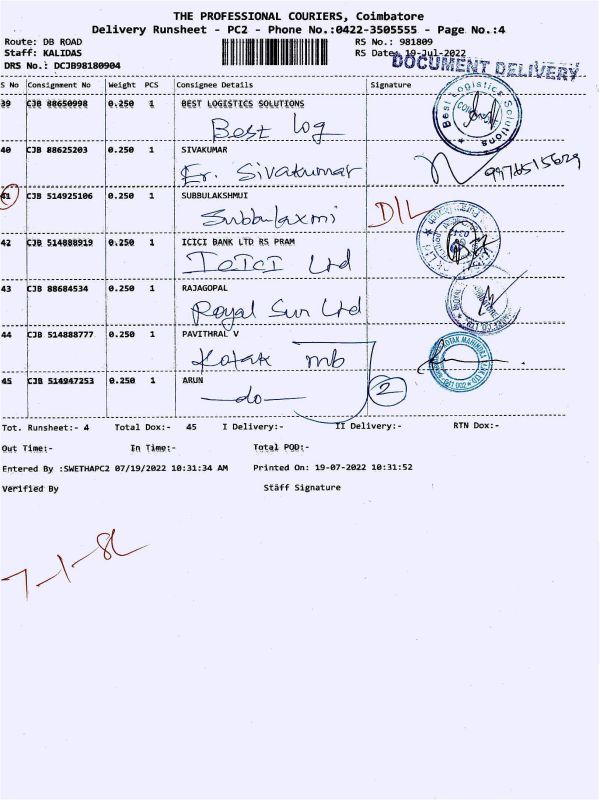 THE PROFESSIONAL COURIERS, Coimbatore
Delivery Runsheet - PC2 - Phone No.:0422-3505555 - Page No.:4
Route: DB ROAD RS No.: 981809
Staff: KALIDAS RS Date: 19-Jul-2022
DRS No.: DCJB98180904 DOCUMENT DELIVERY
S No Consignment No Weight PCS Consignee Details Signature
39 CJB 88650998 0.250 1 BEST LOGISTICS SOLUTIONS
Best Log
Best Logistics Solutions
40 CJB 88625203 0.250 1 SIVAKUMAR
Er. Sivakumar 9976515629
41 CJB 514925106 0.250 1 SUBBULAKSHMUI
Subbulaxmi D/L
42 CJB 514888919 0.250 1 ICICI BANK LTD RS PRAM
ICICI Ltd
43 CJB 88684534 0.250 1 RAJAGOPAL
Royal Sun Ltd
44 CJB 514888777 0.250 1 PAVITHRAL V
Kotak mb
45 CJB 514947253 0.250 1 ARUN
-do- 2
Tot. Runsheet:- 4 Total Dox:- 45 I Delivery:- II Delivery:- RTN Dox:-
Out Time:- In Time:- Total POD:-
Entered By :SWETHAPC2 07/19/2022 10:31:34 AM Printed On: 19-07-2022 10:31:52
Verified By Staff Signature